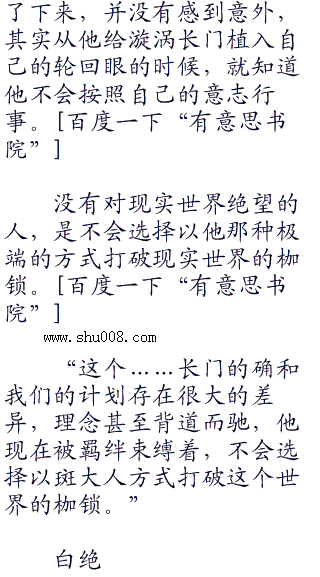 了下来，并没有感到意外，
其实从他给漩涡长门植入自
己的轮回眼的时候，就知道
他不会按照自己的意志行
事。[百度一下“有意思书
院”]
没有对现实世界绝望的
人，是不会选择以他那种极
端的方式打破现实世界的枷
锁。[百度一下“有意思书
院”]
www.shu008.com
“这个……长门的确和
我们的计划存在很大的差
异，理念甚至背道而驰，他
现在被羁绊束缚着，不会选
择以斑大人方式打破这个世
界的枷锁。”
白绝